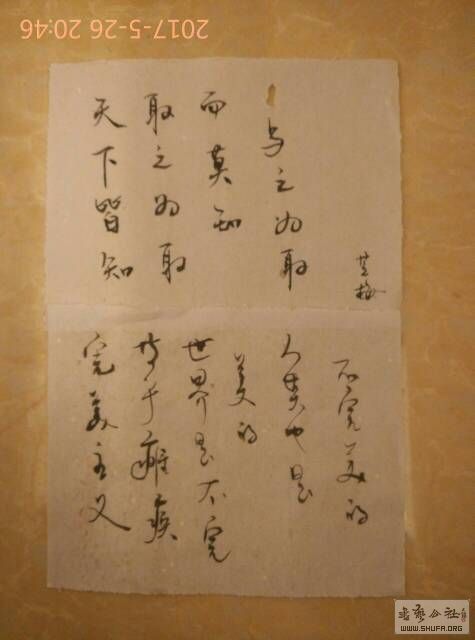 2017-5-26 20:46
天下皆知
取之为取
而莫知
与之为取
完美主义
等于瘫痪
世界是不完
美的
人类也是
不完美的
書藝公社
WWW.SHUFA.ORG